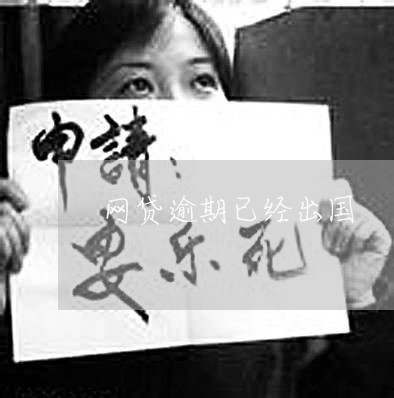 申請：
网贷逾期已经出国
安乐死